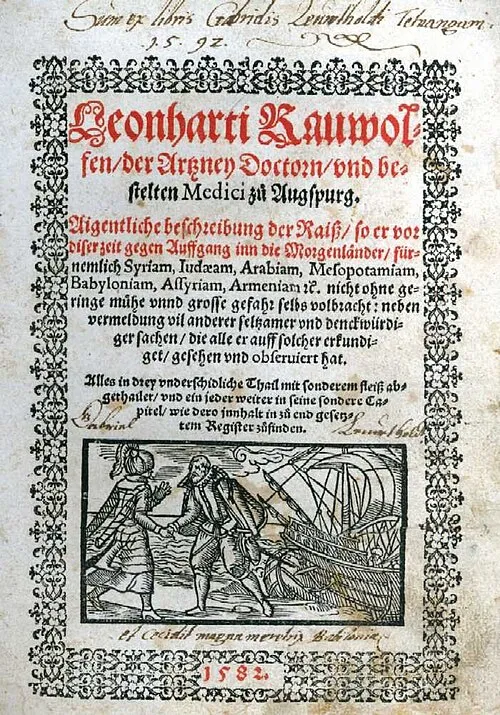 Sum ex libris Gabrielis
1592.
Leonharti Rauwol-
fen/ der Artzney Doctorn/ vnd be-
stelten Medici zů Augspurg.
Aigentliche beschreibung der Raiß/ so er vor
diser zeit gegen Auffgang inn die Morgenländer/ für-
nemlich Syriam, Iudæam, Arabiam, Mesopotamiam,
Babyloniam, Assyriam, Armeniam ꝛc. nicht ohne ge-
ringe mühe vnnd grosse gefahr selbs volbracht: neben
vermeldung vil anderer seltzamer vnd denckwürdi-
ger sachen/ die alle er auff solcher erkundi-
get/ gesehen vnd obseruiert hat.
Alles in drey vnderschidliche Thail mit sonderem fleiß ab-
gethailet/ vnd ein jeder weiter in seine sondere Ca-
pitel/ wie dero innhalt in zů end gesetz-
tem Register zůfinden.
Gabriel
et Cecidit magna meretrix
1582.